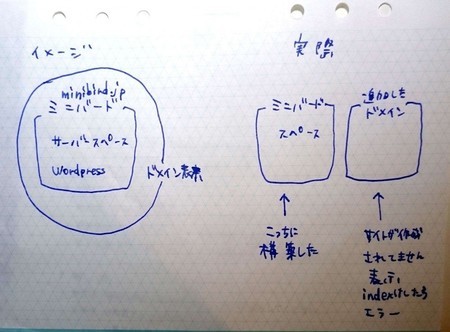 イメージ
minibird.jp
ミニバード
サーバースペース
wordpress
ドメイン
実際
ミニバード
スペース
追加した
ドメイン
こっちに
構築した
サイトが作成
されてません
表示
index消したら
エラー